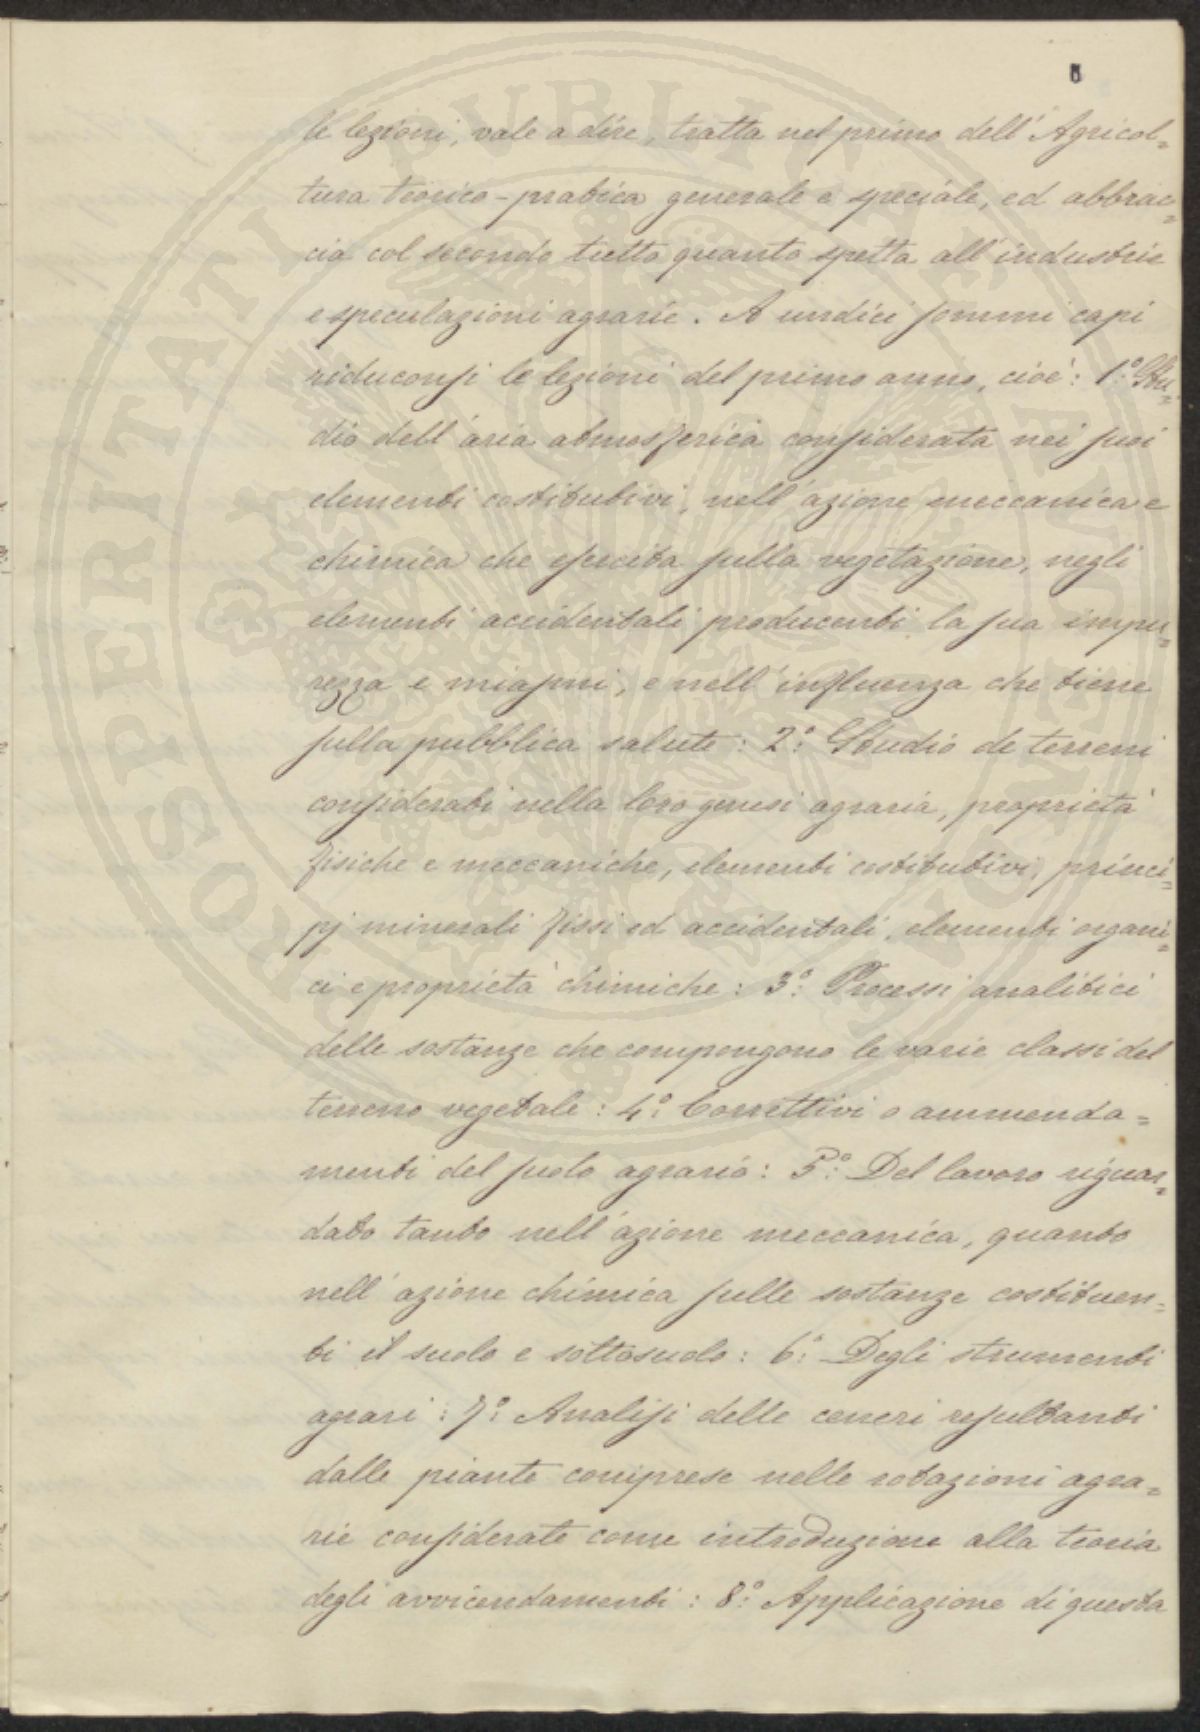 8
le lezioni, vale a dire, tratta nel primo dell'Agricol=
tura teorico-pratica generale e speciale, ed abbrac=
cia col secondo tutto quanto spetta all'industrie
e speculazioni agrarie. A undici sommi capi
riduconsi le lezioni del primo anno, cioè: 1.º Stu=
dio dell'aria atmosferica considerata nei suoi
elementi costitutivi, nell'azione meccanica e
chimica che esercita sulla vegetazione, negli
elementi accidentali producenti la sua impu=
rezza e miasmi, e nell'influenza che tiene
sulla pubblica salute: 2.º Studio de terreni
considerati nella loro genesi agraria, proprietà
fisiche e meccaniche, elementi costitutivi, princi=
pj minerali fissi ed accidentali, elementi organi=
ci e proprietà chimiche: 3.º Processi analitici
delle sostanze che compongono le varie classi del
terreno vegetale: 4.º Correttivi o ammenda=
menti del suolo agrario: 5.º Del lavoro riguar=
dato tanto nell'azione meccanica, quanto
nell'azione chimica sulle sostanze costituen=
ti il suolo e sottosuolo: 6.º Degli strumenti
agrari: 7.º Analisi delle ceneri resultanti
dalle piante comprese nelle rotazioni agra=
rie considerate come introduzione alla teoria
degli avvicendamenti: 8.º Applicazione di questa
PROSPERITATI PVBLICAE